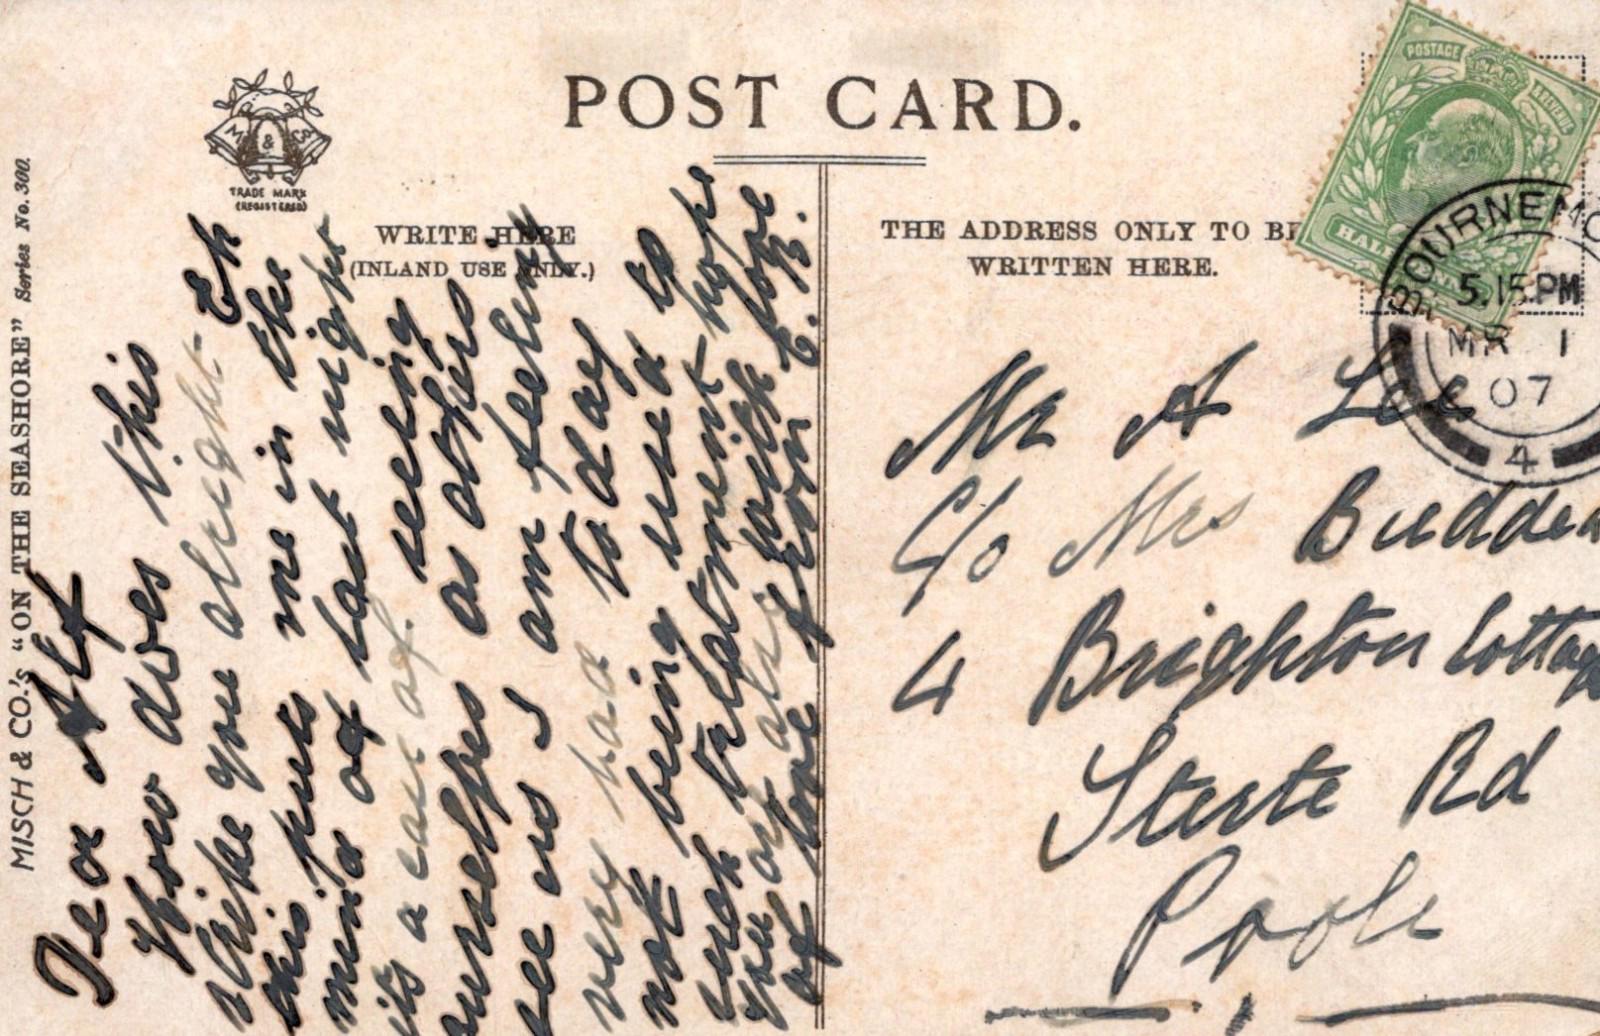 POST CARD.
M & Co
TRADE MARK
(REGISTERED)
WRITE HERE
(INLAND USE ONLY.)
THE ADDRESS ONLY TO BE
WRITTEN HERE.
MISCH & CO.'s "ON THE SEASHORE" Series No. 300.
POSTAGE
HALF
BOURNEMO
5.15.PM
MR 1
07
4
Dear Alf
How does this
strike you alright - Eh
this puts me in the
mind of last night
its a case of seeing
ourselfes as others
see us I am feeling
very bad today
not being used to
such treatment hope
you are alright with love
of love from E. B.
Mr A Lee
C/o Mrs Budden
4 Brighton Cottag
Sterte Rd
Poole